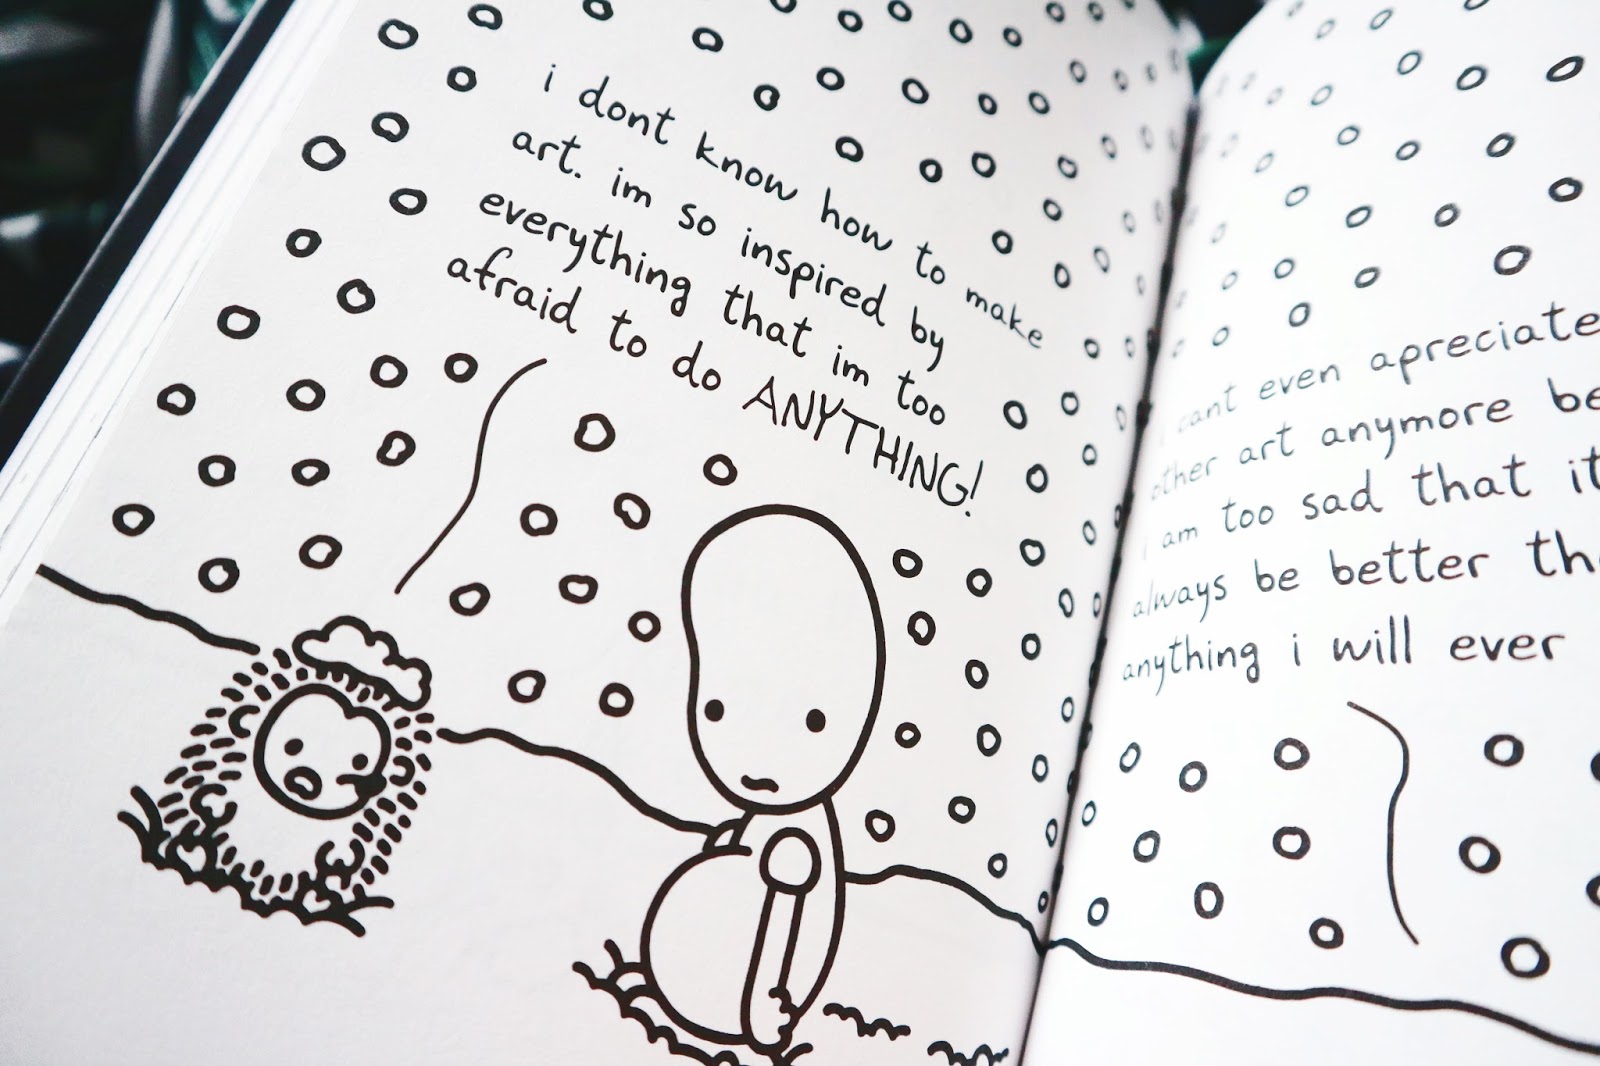 i dont know how to make
art. im so inspired by
everything that im too
afraid to do ANYTHING!
i cant even apreciate
other art anymore be
i am too sad that it
always be better tha
anything i will ever